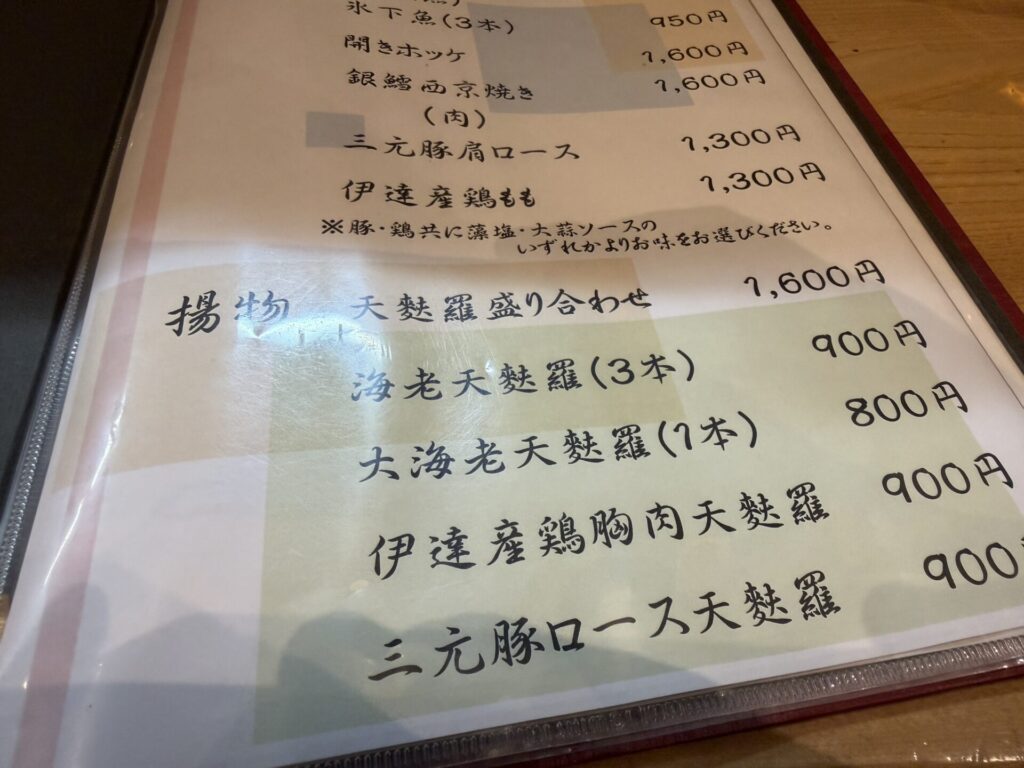 氷下魚(3本) 950円
開きホッケ 1,600円
銀鱈西京焼き 1,600円
(肉)
三元豚肩ロース 1,300円
伊達産鶏もも 1,300円
※豚・鶏共に藻塩・大蒜ソースの
いずれかよりお味をお選びください。
揚物 天麩羅盛り合わせ 1,600円
海老天麩羅(3本) 900円
大海老天麩羅(1本) 800円
伊達産鶏胸肉天麩羅 900円
三元豚ロース天麩羅 900